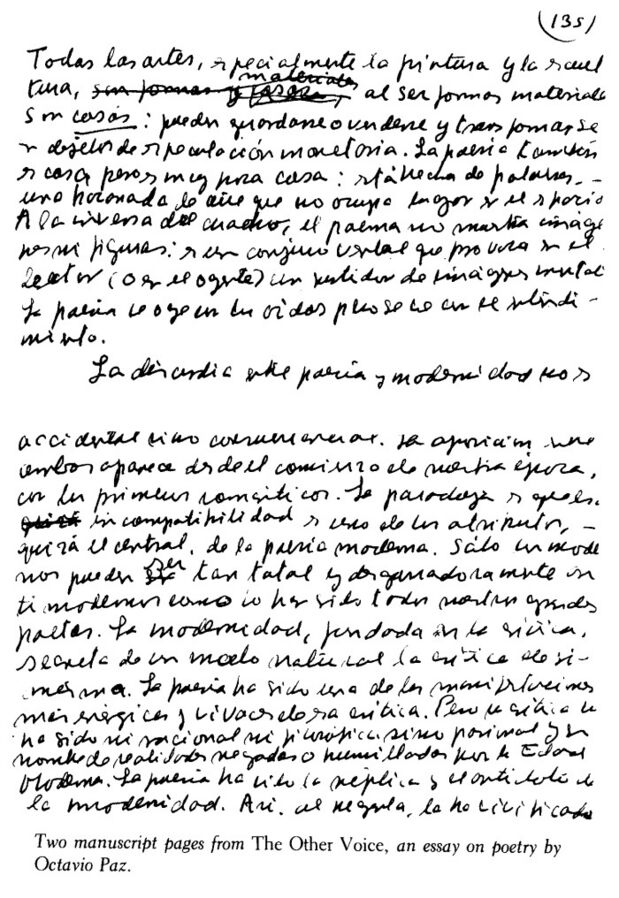 (135)
Todas las artes, especialmente la pintura y la escul
tura, sin formas materiales y, al ser formas materiales
son cosas: pueden guardarse o venderse y transformarse
en objetos de especulación monetaria. La poesía también
es cosa pero es muy poca cosa: está hecha de palabras, -
una bocanada de aire que no ocupa lugar en el espacio
A la inversa del cuadro, el poema no muestra imáge
nes ni figuras: es un conjuro verbal que provoca en el
lector (o en el oyente) un surtidor de imágenes mentales
La poesía se oye con los oídos pero se ve con el entendi-
miento.
La discordia entre poesía y modernidad no es
accidental sino consustancial. La oposición entre
ambas aparece desde el comienzo de nuestra época,
con los primeros románticos. La paradoja es que esa
incompatibilidad es uno de los atributos, -
quizá el central, de la poesía moderna. Sólo los moder
nos pueden ser tan total y desgarradoramente an
timodernos como lo han sido todos nuestros grandes
poetas. La modernidad, fundada en la crítica,
secreta de un modo natural la crítica de sí
misma. La poesía ha sido una de las manifestaciones
más enérgicas y vivaces de esa crítica. Pero su crítica no
ha sido ni racional ni filosófica sino pasional y en
nombre de realidades negadas o humilladas por la Edad
Moderna. La poesía ha sido la réplica y el antídoto de
la modernidad. Así, al negarla, la ha vivificado
Two manuscript pages from The Other Voice, an essay on poetry by
Octavio Paz.